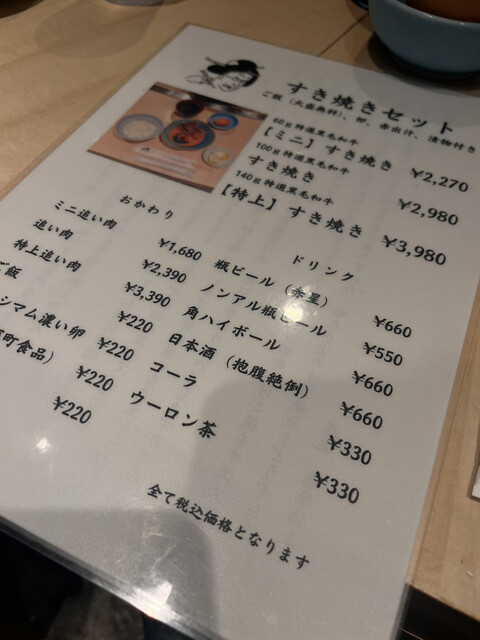 すき焼きセット
ご飯(大盛無料)、卵、赤出汁、漬物付き
60g特選黒毛和牛
【ミニ】すき焼き ¥2,270
100g特選黒毛和牛
すき焼き ¥2,980
140g特選黒毛和牛
【特上】すき焼き ¥3,980
おかわり
ミニ追い肉 ¥1,680
追い肉 ¥2,390
特上追い肉 ¥3,390
ご飯 ¥220
シマム濃い卵 ¥220
町食品) ¥220
¥220
ドリンク
瓶ビール(赤星) ¥660
ノンアル瓶ビール ¥550
角ハイボール ¥660
日本酒(抱腹絶倒) ¥660
コーラ ¥330
ウーロン茶 ¥330
全て税込価格となります